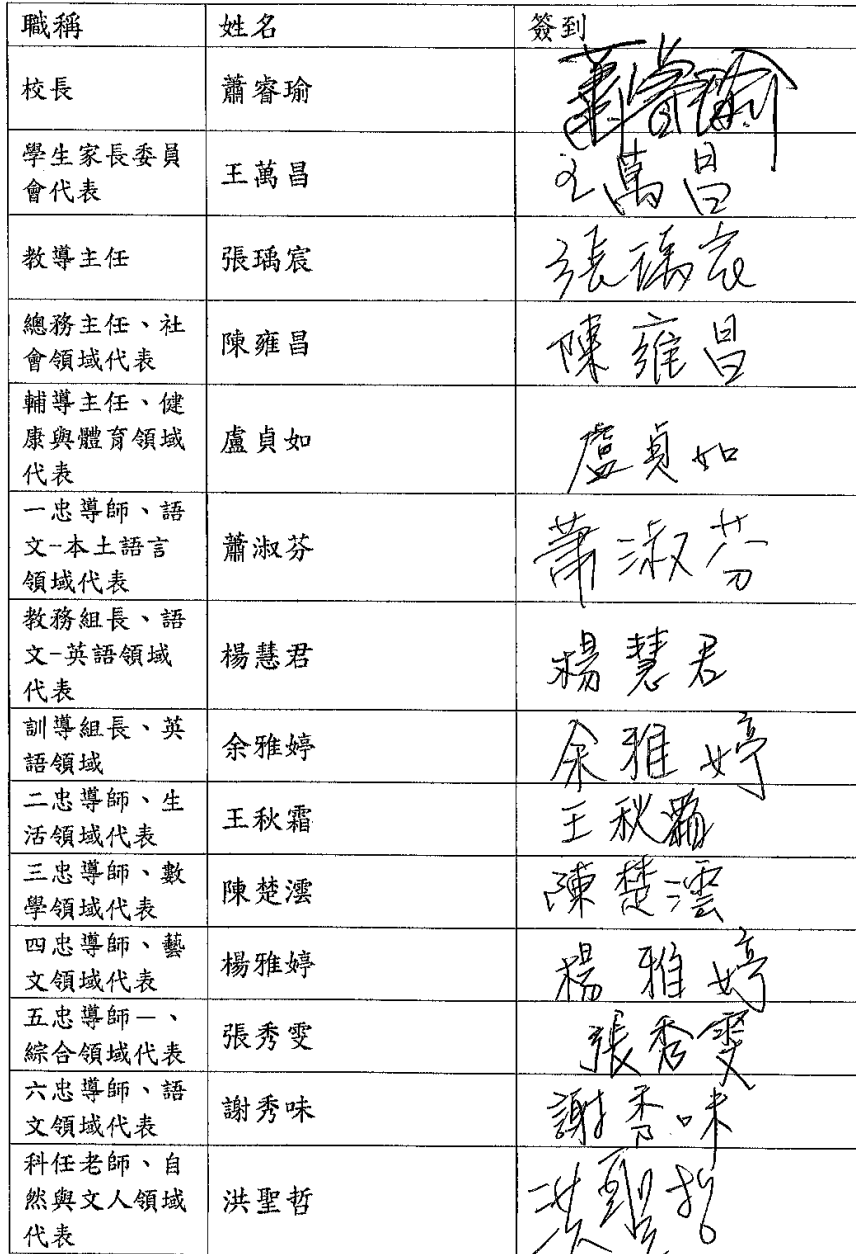 職稱 姓名 簽到
校長 蕭睿瑜 蕭睿瑜
學生家長委員
會代表 王萬昌 王萬昌
教導主任 張瑀宸 張瑀宸
總務主任、社
會領域代表 陳雍昌 陳雍昌
輔導主任、健
康與體育領域
代表 盧貞如 盧貞如
一忠導師、語
文-本土語言
領域代表 蕭淑芬 蕭淑芬
教務組長、語
文-英語領域
代表 楊慧君 楊慧君
訓導組長、英
語領域 余雅婷 余雅婷
二忠導師、生
活領域代表 王秋霜 王秋霜
三忠導師、數
學領域代表 陳楚澐 陳楚澐
四忠導師、藝
文領域代表 楊雅婷 楊雅婷
五忠導師－、
綜合領域代表 張秀雯 張秀雯
六忠導師、語
文領域代表 謝秀味 謝秀味
科任老師、自
然與文人領域
代表 洪聖哲 洪聖哲